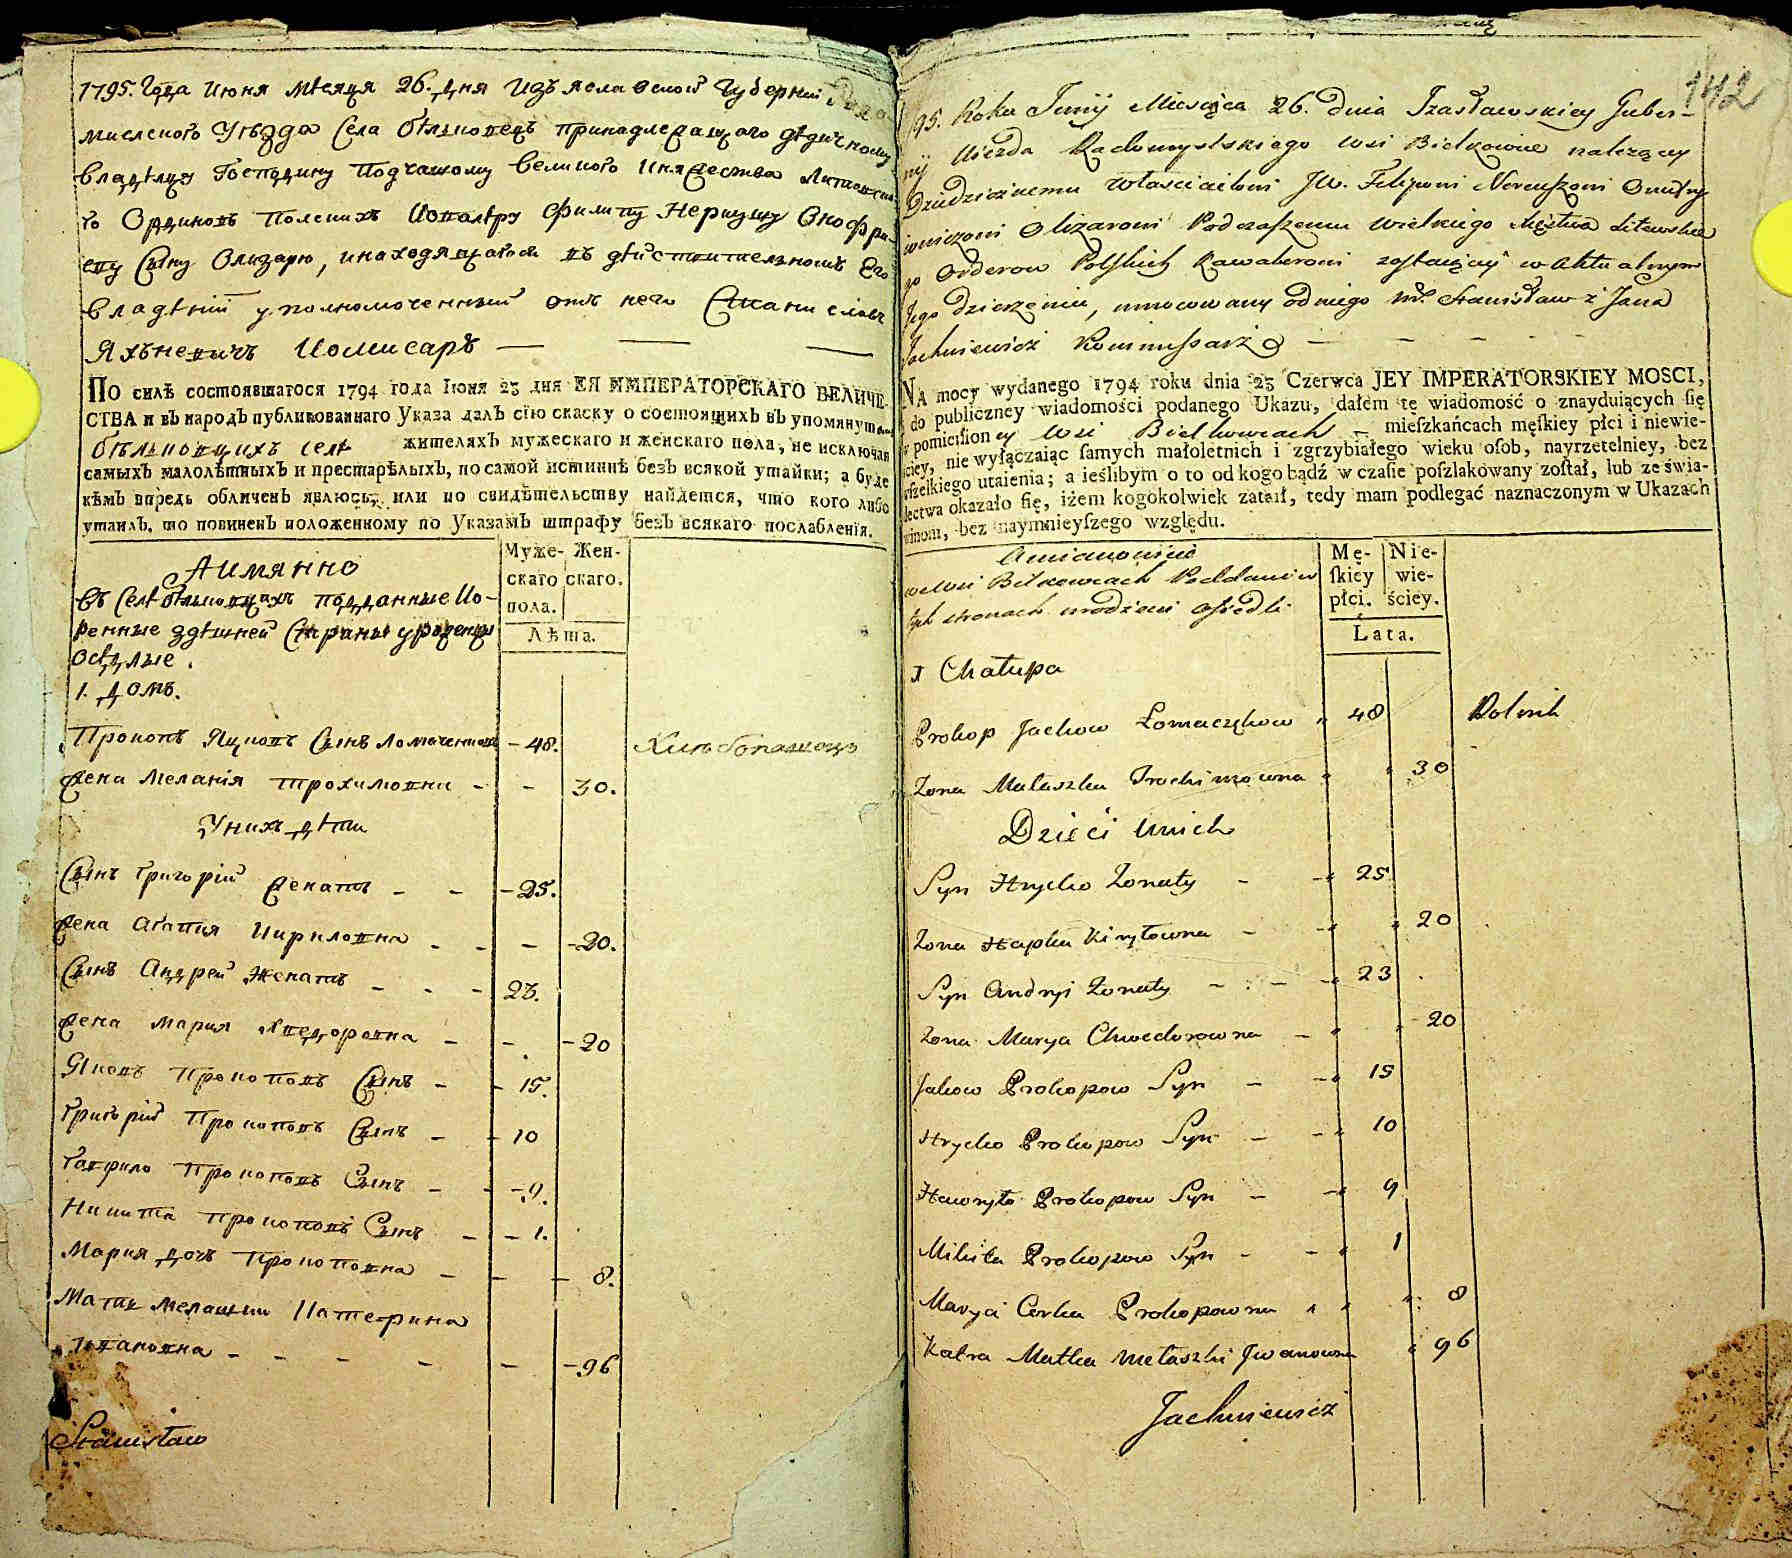 1795. Года Июня Мѣсяца 26. дня Изъяславской Губерніи
мисленого Уѣзда Села Бѣлковецъ принадлежащого дѣдичному
владѣлцу Господину Подчашому великого Княжества Литовска
го Ординовъ Полскихъ Кавалѣру Филипу Нериушу Онофри-
еву Сыну Олизарю, инаходящагося въ дѣйствительномъ Его
владѣніи уполномоченный отъ него Станиславъ
Яхъневичъ Комисаръ — — —
ПО силѣ состоявшагося 1794 года Іюня 23 дня ЕЯ ИМПЕРАТОРСКАГО ВЕЛИЧЕ-
СТВА и въ народъ публикованнаго Указа далъ сію скаску о состоящихъ въ упомянутомъ
Бѣлковцихъ селѣ жителяхъ мужескаго и женскаго пола, не исключая
самыхъ малолѣтныхъ и престарѣлыхъ, по самой истиннѣ безъ всякой утайки; а буде
кѣмъ впредь обличенъ явлюсь, или по свидѣтельству найдется, что кого либо
утаилъ, то повиненъ положенному по Указамъ штрафу безъ всякаго послабленія.
Аимянно
въ Селѣ Бѣлковцахъ подданные Ко-
ренные здѣшней Страны урожденцы
осѣдлые.
1. домъ.
Муже-
скаго
пола.
Жен-
скаго.
Лѣта.
Прокопъ Яцковъ Сынъ Ломаченковъ - 48. Хлѣбопашецъ
Жена Меланія Трохимовни - - 30.
Унихъ дѣти
Сынъ Григорій Женатъ - - - 25.
Жена Агапия Кириловна - - - -20.
Сынъ Андрей Женатъ - - - 23.
Жена Мария Хведоровна - - - 20
Яковъ Прокоповъ Сынъ - - 15.
Григорій Прокоповъ Сынъ - - 10
Гаврило Прокоповъ Сынъ - - 9.
Никита Прокоповъ Сынъ - - 1.
Мария дочъ Прокоповна - - - 8.
Мать Мелашки Катерина
Ивановна - - - - - -96
Stanisław
142
95. Roku Junij Miesiąca 26. dnia Izasławskiey Guber-
nij Uiezda Radomyslskiego wsi Bielkowiec należącey
Dziedzicznemu Włascicielowi JW. Filipowi Nereuszowi Onufry
iewiczowi Olizarowi Podczaszemu Wielkiego Xięstwa Litewskie
go Orderow Polskich Kawalerowi zostaiącey w Aktualnym
Jego dzierżeniu, umocowany od niego Stanisław z Jana
Jachniewicz Kommissarz - - - -
NA mocy wydanego 1794 roku dnia 23 Czerwca JEY IMPERATORSKIEY MOSCI,
do publiczney wiadomości podanego Ukazu, dałem tę wiadomość o znayduiących ſię
w pomieſioney Wsi Bielkowcach - mieſzkańcach męſkiey płci i niewie-
ściey, nie wyłączaiąc ſamych małoletnich i zgrzybiałego wieku oſob, nayrzetelniey, bez
wſzelkiego utaienia; a ieślibym o to od kogo bądź w czaſie poſzlakowany zoſtał, lub ze świa-
dectwa okazało ſię, iżem kogokolwiek zataił, tedy mam podlegać naznaczonym w Ukazach
winom, bez naymnieyſzego względu.
Amianowicie
we Wsi Bilkowcach Poddani w
tych stronach urodzeni Osiedli
Mę-
ſkiey
płci.
Nie-
wie-
ściey.
Lata.
1 Chałupa
Prokop Jackow Łomaczękow 48 Rolnik
Żona Małaszka Trochimowna 30
Dzieci Unich
Syn Hrycko Żonaty - - 25
Żona Hapka Kiryłowna - - 20
Syn Andryi Żonaty - - - 23
Żona Marya Chwedorowna - 20
Jakow Prokopow Syn - - 15
Hrycko Prokopow Syn - - 10
Hawryło Prokopow Syn - - 9
Mikita Prokopow Syn - - 1
Marya Corka Prokopowna 8
Katra Matka Mełaszki Iwanowna 96
Jachniewicz